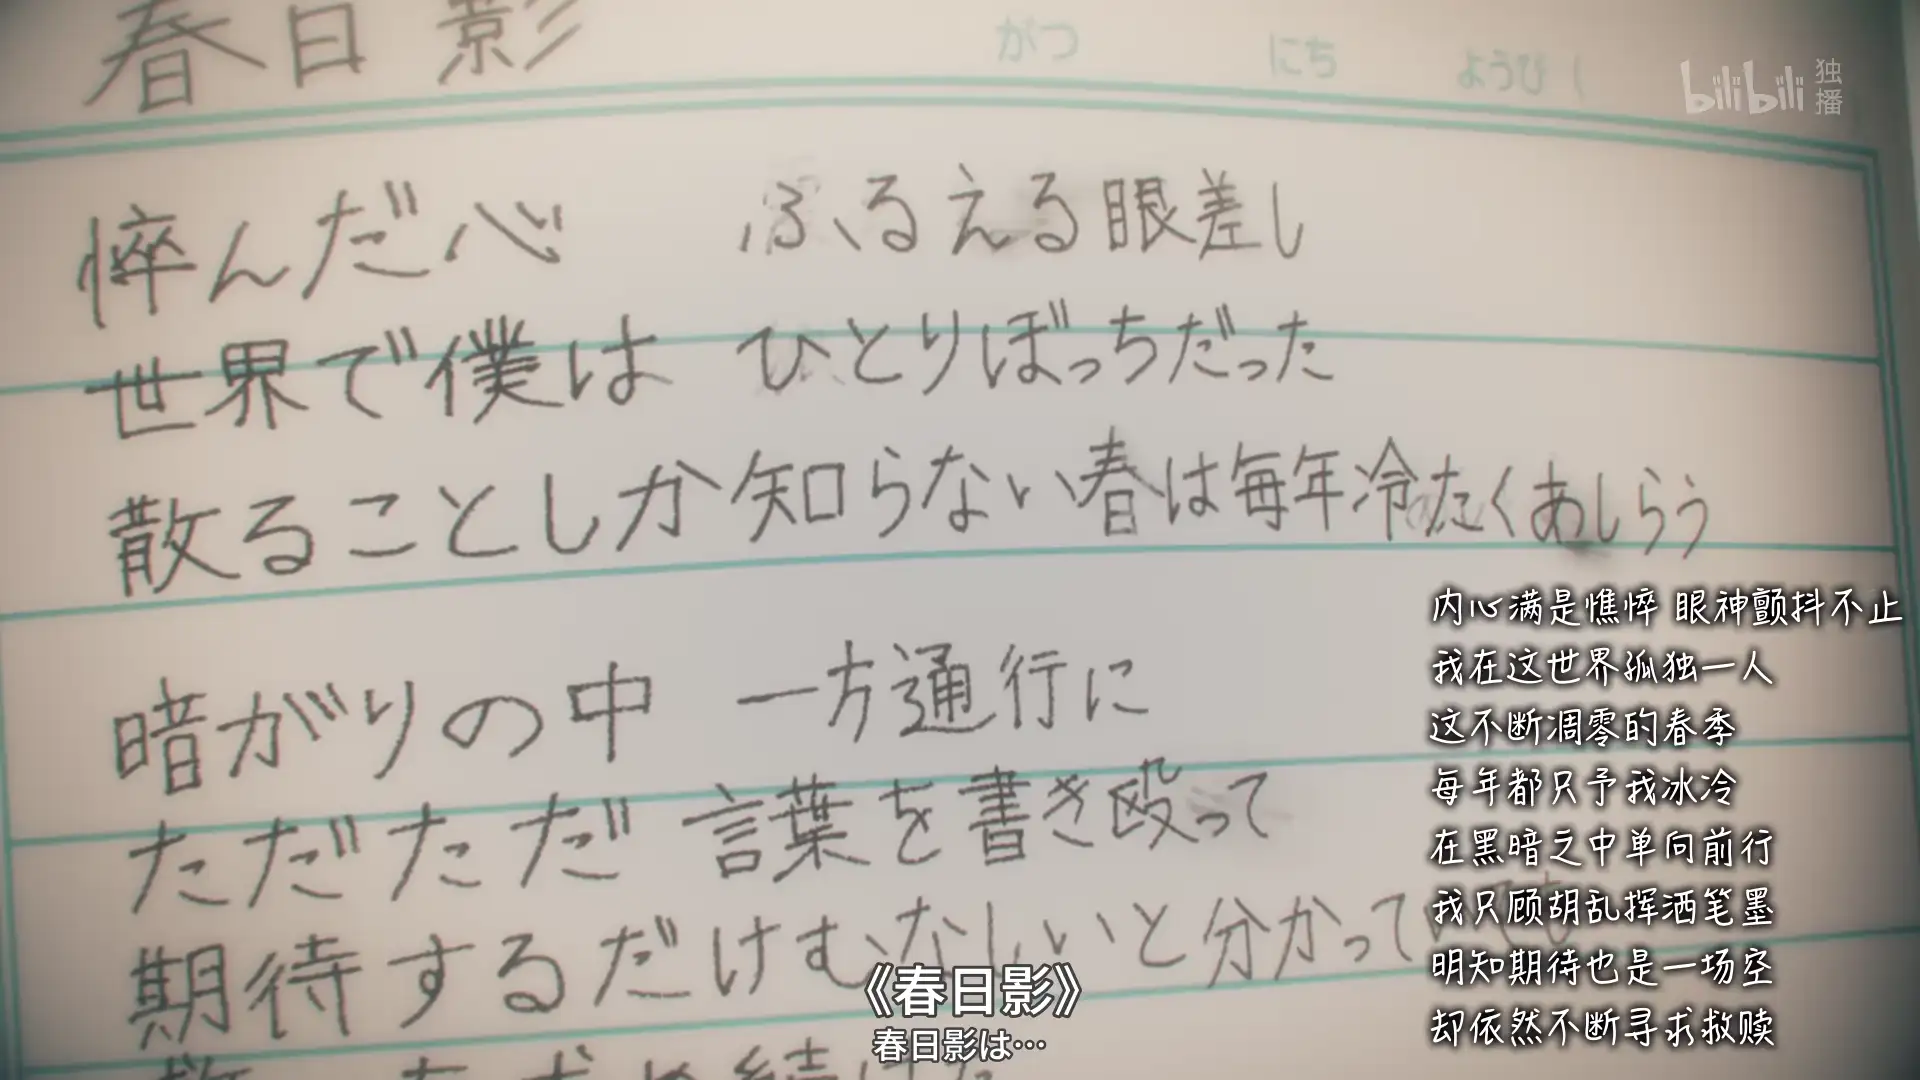 春日影
がつ にち ようび (
bilibili 独播
悴んだ心 ふるえる眼差し
世界で僕は ひとりぼっちだった
散ることしか知らない春は毎年冷たくあしらう
暗がりの中 一方通行に
ただただ 言葉を書き殴って
期待するだけむなしいと分かっていても
救いを求め続けた
内心满是憔悴 眼神颤抖不止
我在这世界孤独一人
这不断凋零的春季
每年都只予我冰冷
在黑暗之中单向前行
我只顾胡乱挥洒笔墨
明知期待也是一场空
却依然不断寻求救赎
《春日影》
春日影は…